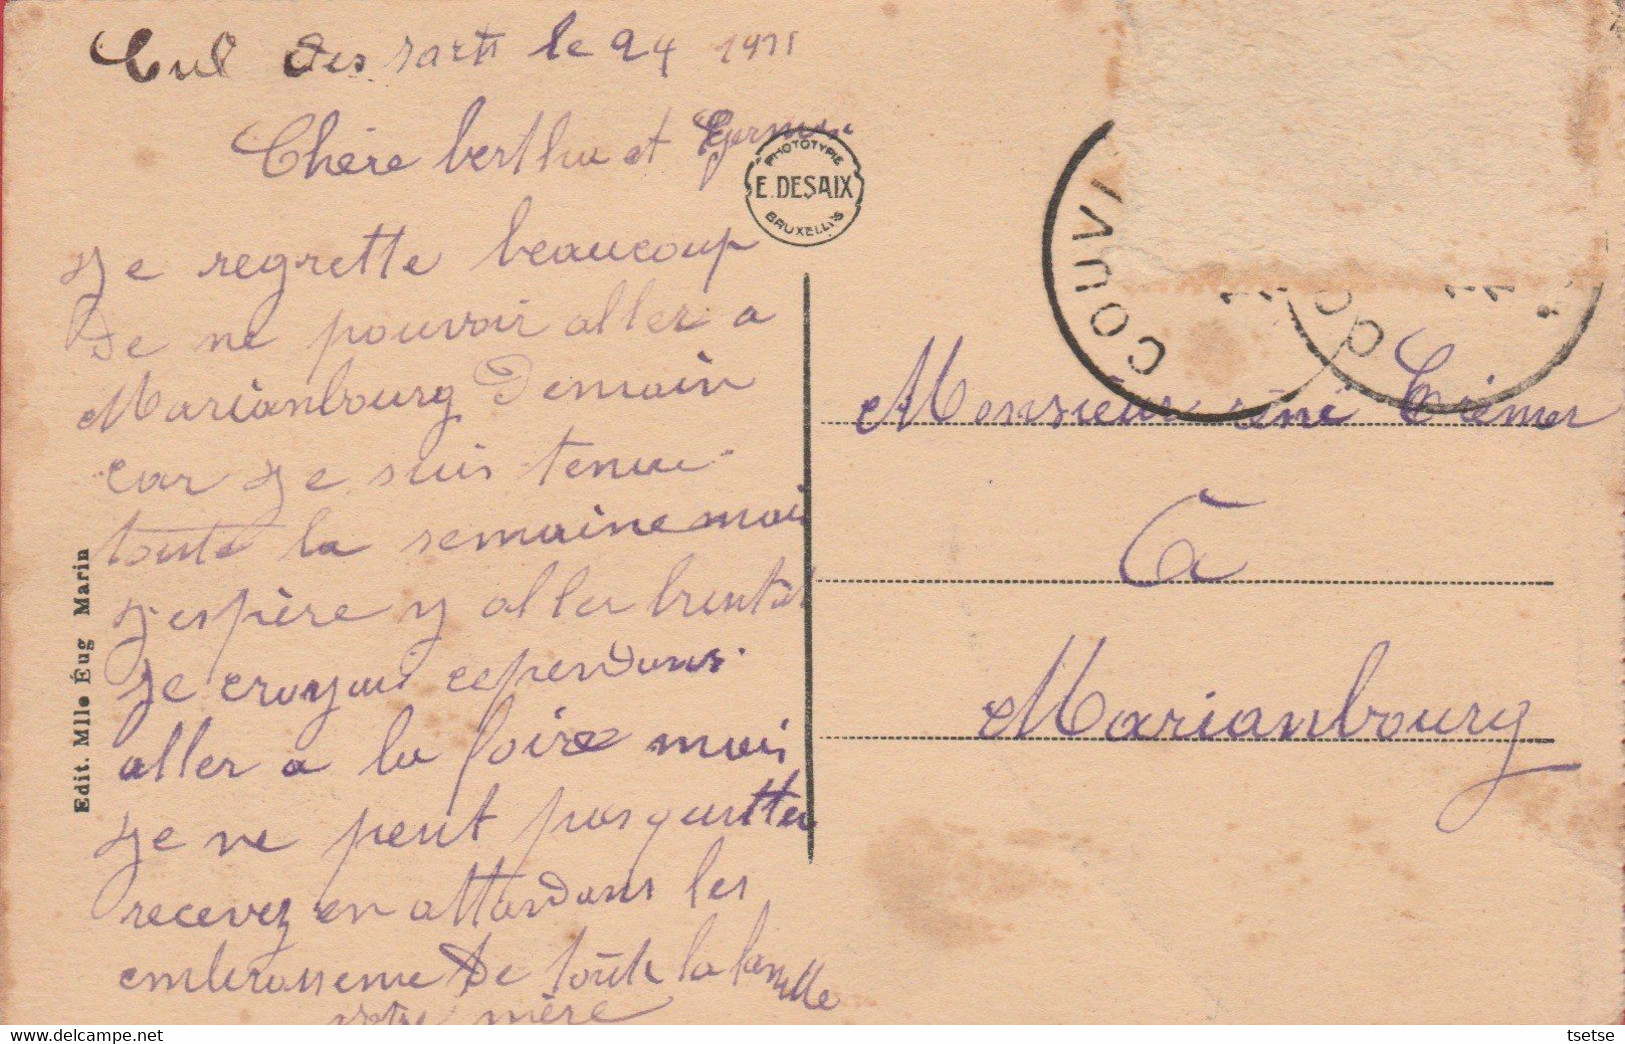 Cul des sarts le 24 1911
Chère bertha et
PHOTOTYPIE
E. DESAIX
BRUXELLES
Je regrette beaucoup
De ne pouvoir aller a
Marianbourg Demain
car Je suis tenue
toute la semaine mais
J espère y aller
Je croyais cependans
aller a la foire mais
Je ne peut pas quitter
recevez en attandans les
embrasseme De toute la famille
votre mère
Edit. Mlle Éug Marin
COUVI
Monsieur réné Crémer
A
Marianbourg
tsetse